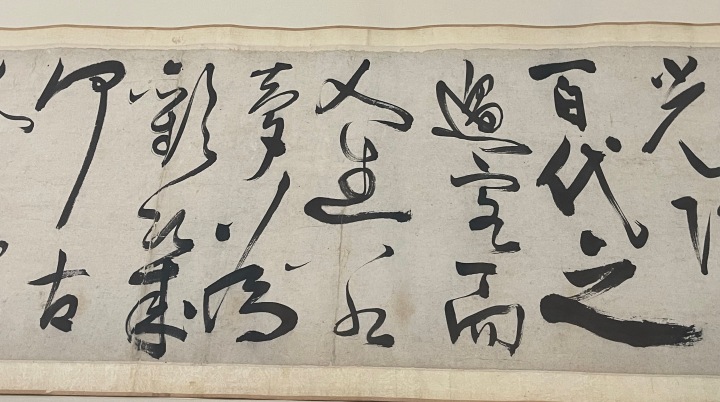 光陰
百代之
過客而
浮生若
夢為
歡幾
何古